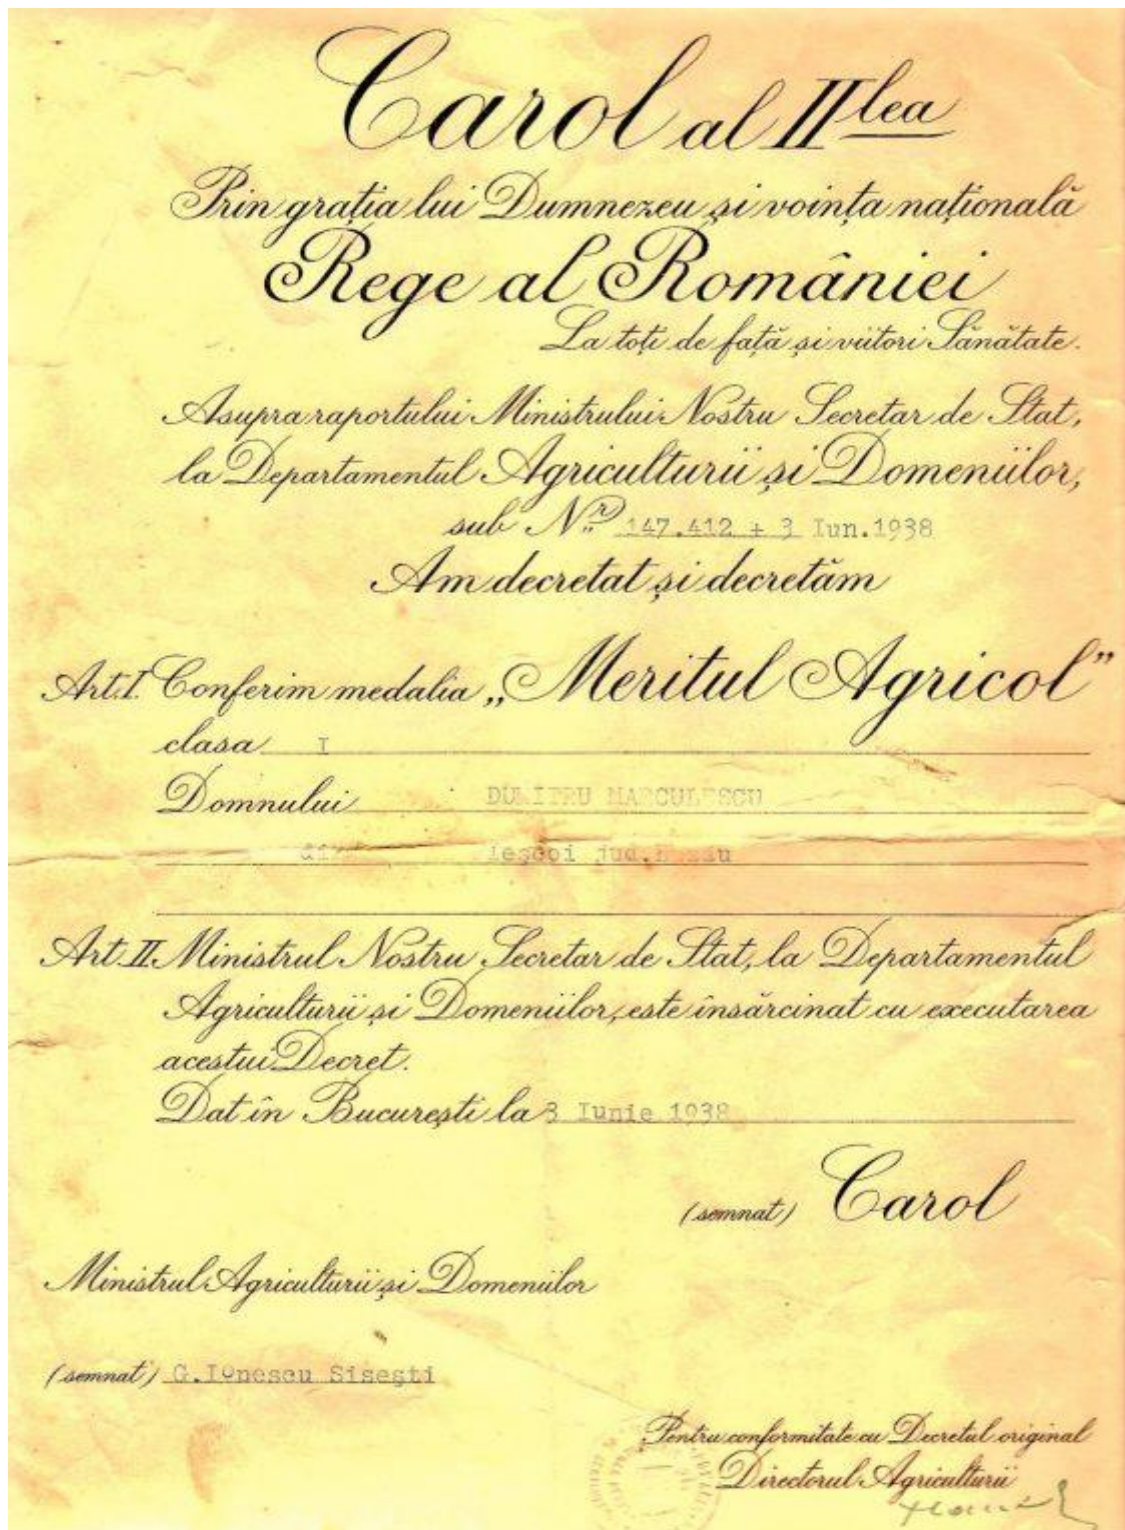 Carol al II lea
Prin grația lui Dumnezeu și voința națională
Rege al României
La toți de față și viitori Sănătate.
Asupra raportului Ministrului Nostru Secretar de Stat,
la Departamentul Agriculturii și Domeniilor,
sub Nr 147.412 + 3 Iun.1938
Am decretat și decretăm
Art. I. Conferim medalia „Meritul Agricol”
clasa I
Domnului DUMITRU MARCULESCU
jud.
Art. II. Ministrul Nostru Secretar de Stat, la Departamentul
Agriculturii și Domeniilor, este însărcinat cu executarea
acestui Decret.
Dat în București la 3 Iunie 1938
(semnat) Carol
Ministrul Agriculturii și Domeniilor
(semnat) G.Ionescu Sisești
Pentru conformitate cu Decretul original
Directorul Agriculturii